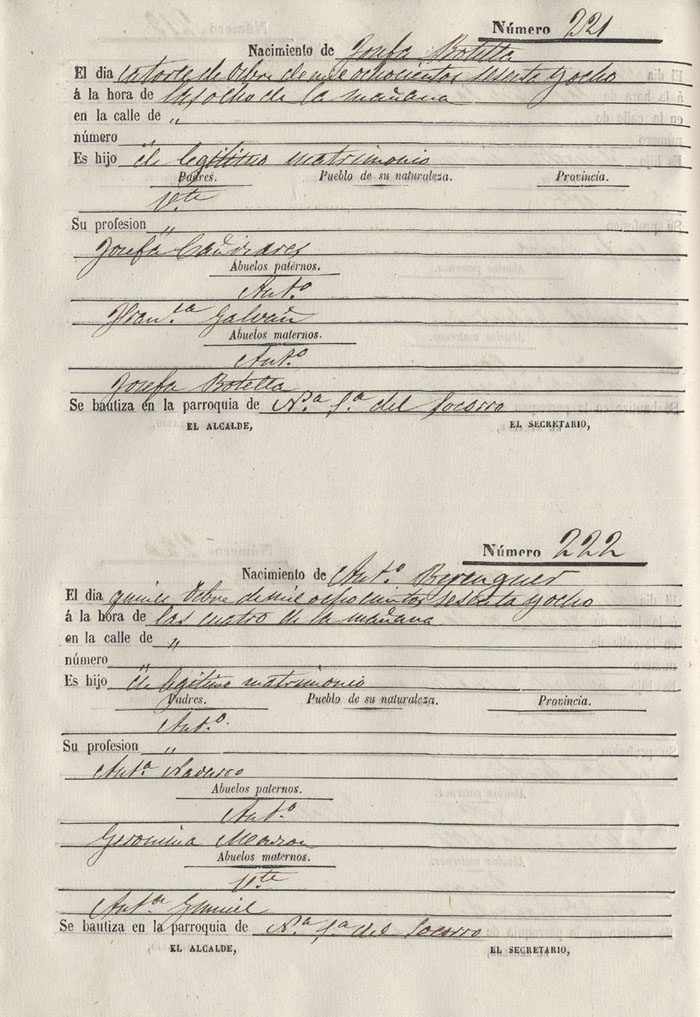 Número 221
Nacimiento de Josefa Botella
El dia catorce de 8bre de mil ochocientos sesenta y ocho
á la hora de las ocho de la mañana
en la calle de "
número "
Es hijo de legitimo matrimonio
Padres. Pueblo de su naturaleza. Provincia.
Vte
Su profesion "
Josefa Cañizares
Abuelos paternos.
Ant.º
Fran.ca Galvañ
Abuelos maternos.
Ant.º
Josefa Botella
Se bautiza en la parroquia de N.ª S.ª del Socorro
EL ALCALDE, EL SECRETARIO,
Número 222
Nacimiento de Ant.º Berenguer
El dia quince 8bre de mil ochocientos sesenta y ocho
á la hora de las cuatro de la mañana
en la calle de "
número "
Es hijo de legitimo matrimonio
Padres. Pueblo de su naturaleza. Provincia.
Ant.º
Su profesion "
Ant.ª Navarro
Abuelos paternos.
Ant.º
Geronima
Abuelos maternos.
Vte
Ant.ª
Se bautiza en la parroquia de N.ª S.ª del Socorro
EL ALCALDE, EL SECRETARIO,